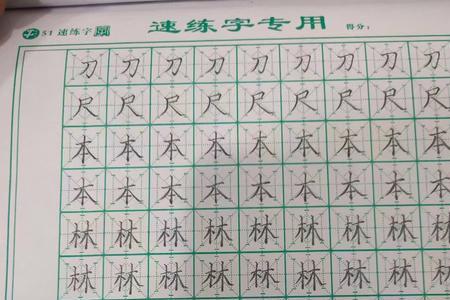 51 速练字 速练字专用 得分:
刀 刀 刀 刀 刀 刀 刀 刀 刀
尺 尺 尺 尺 尺 尺 尺 尺 尺
本 本 本 本 本 本 本 本 本
本 本 本 本 本 本 本 本 本
林 林 林 林 林 林 林 林 林
林 林 林 林 林 林 林 林 林